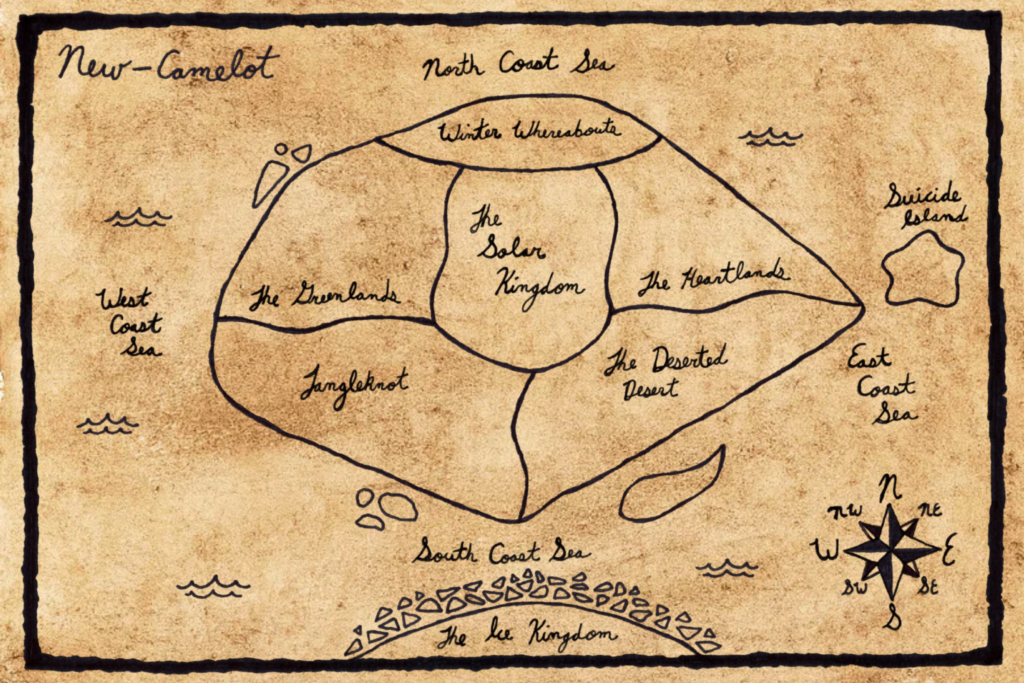 New-Camelot
North Coast Sea
Winter Whereabouts
Suicide
Island
The
Solar
Kingdom
The Greenlands
The Heartlands
West
Coast
Sea
Tangleknot
The Deserted
Desert
East
Coast
Sea
N
NW
NE
W
E
SW
SE
S
South Coast Sea
The Ice Kingdom